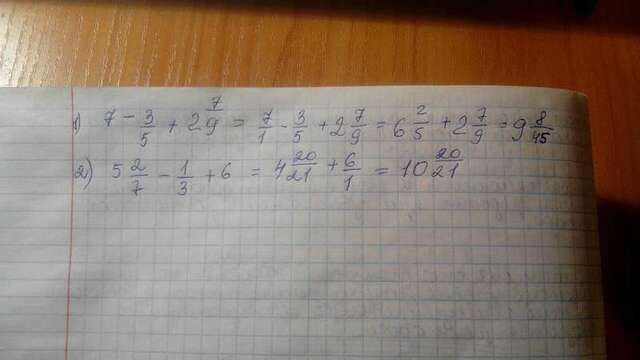 1) 7 - 3/5 + 2 7/9 = 7/1 - 3/5 + 2 7/9 = 6 2/5 + 2 7/9 = 9 8/45
2) 5 2/7 - 1/3 + 6 = 4 20/21 + 6/1 = 10 20/21